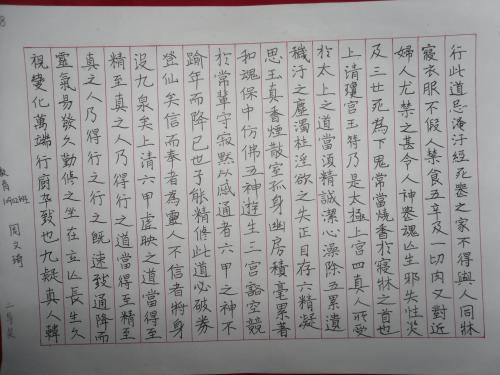 行此道忌淹汙經死喪之家不得與人同牀
寢衣服不假人禁食五辛及一切肉又對近
婦人尤禁之甚令人神喪魂亡生邪失性災
及三世死為下鬼常當燒香於寢牀之首也
上清瓊宮玉符乃是太極上宮四真人所受
於太上之道當須精誠潔心澡除五累遺
穢汙之塵濁杜淫欲之失正目存六精凝
思玉真香煙散室孤身幽房積毫累著
和魂保中仿佛五神遊生三宮豁空競
於常輩守寂默以感通者六甲之神不
踰年而降已也子能精修此道必破券
登仙矣信而奉者為靈人不信者將身
沒九泉矣上清六甲虛映之道當得至
精至真之人乃得行之行道當得至精至
真之人乃得行之行之既速致通降而
靈氣易發久勤修之坐在立亡長生久
視變化萬端行廚卒致也九疑真人韓
教育
周文琦
二等奖